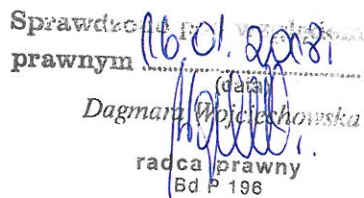 Sprawdzono pod względem
prawnym 16.01.2018r.
(data)
Dagmara Wojciechowska
radca prawny
Bd P 196